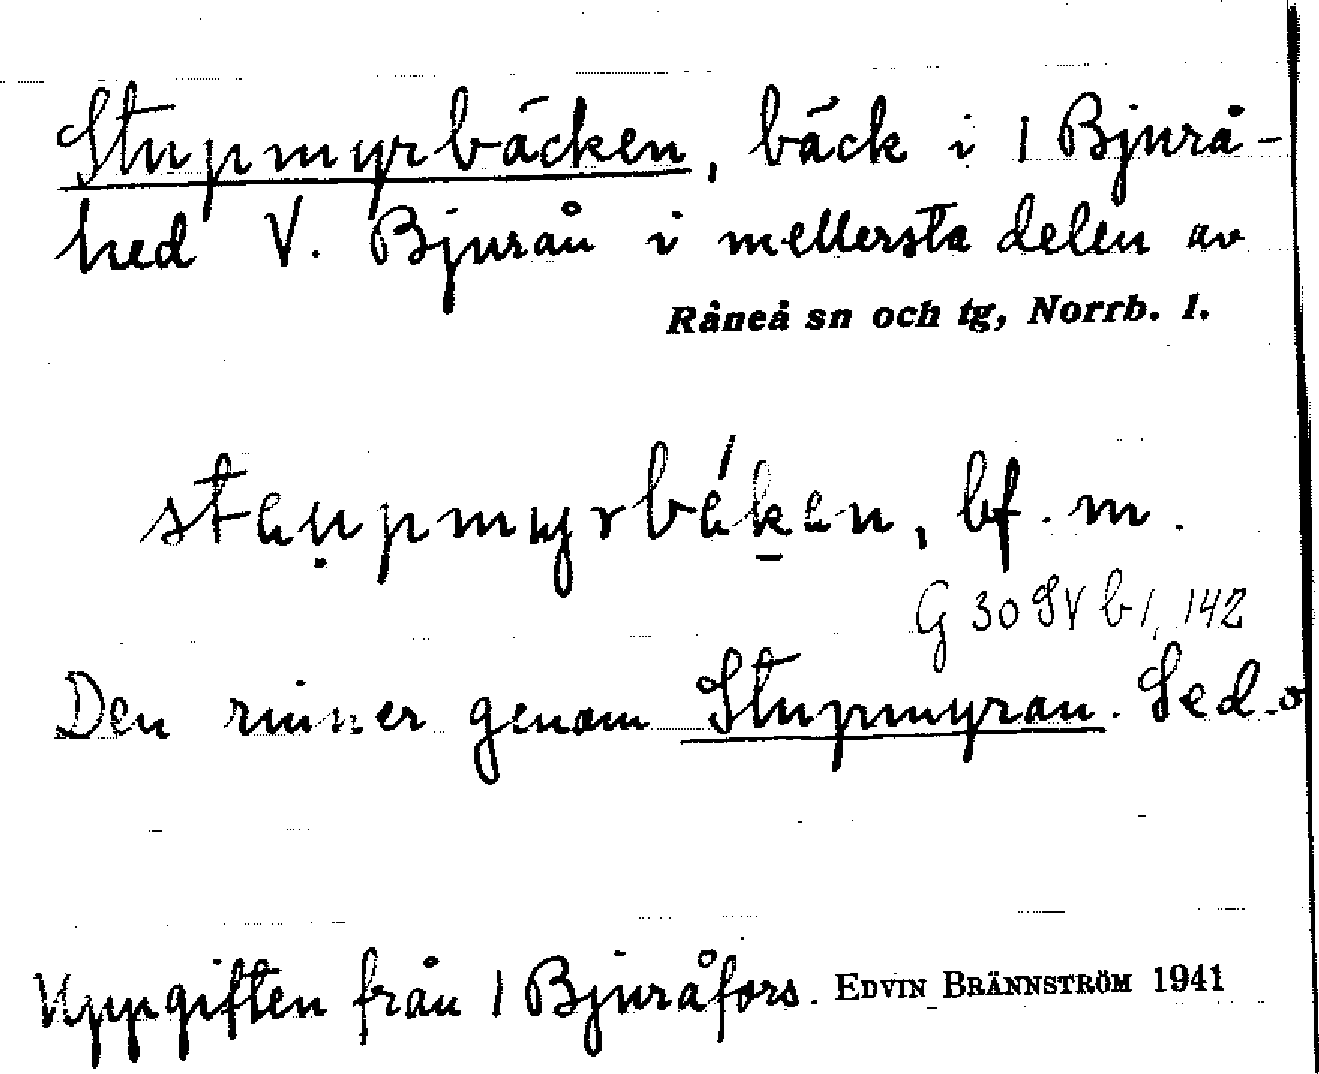 Stupmyrbäcken, bäck i 1 Bjurå-
hed V. Bjurån i mellersta delen av
Råneå sn och tg, Norrb. l.
staupmyrbékan, bf. m.
G 30 SV b 1, 142
Den rinner genom Stupmyran. Se d. o
Uppgiften från 1 Bjuråfors. EDVIN BRÄNNSTRÖM 1941